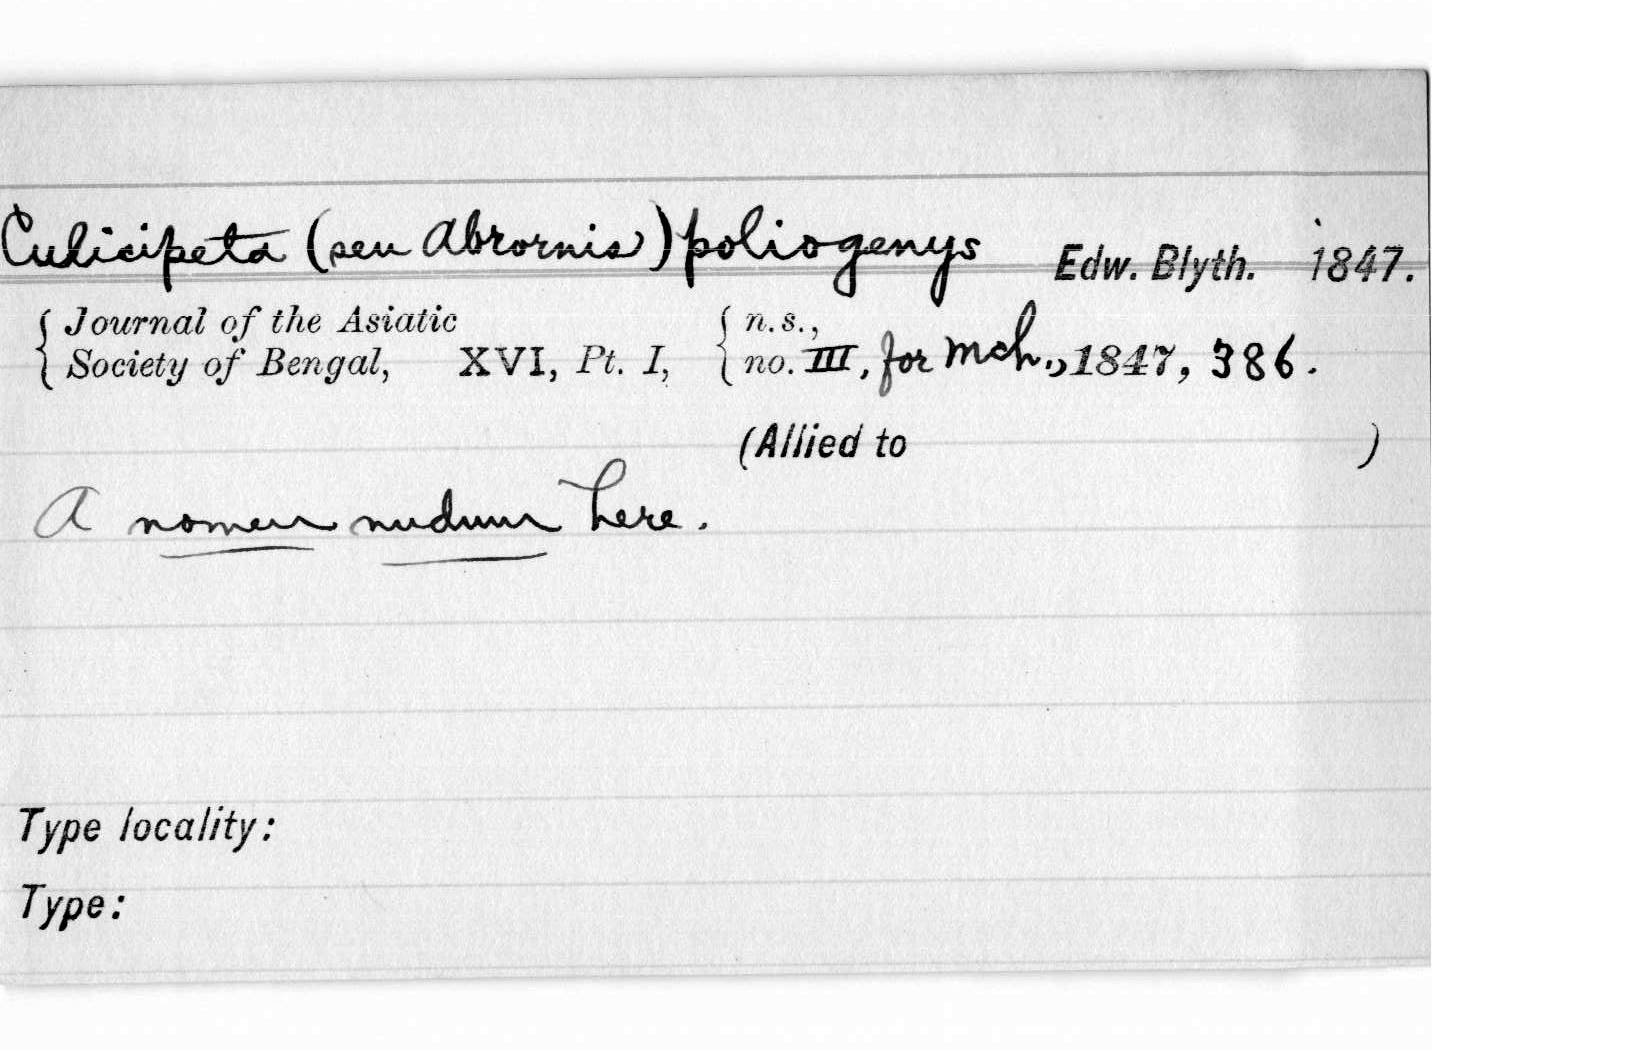 Culicipeta (seu Abrornis) poliogenys Edw. Blyth. 1847.
Journal of the Asiatic Society of Bengal, XVI, Pt. I, n.s., no. III, for Mch., 1847, 386.
(Allied to )
A nomen nudum here.
Type locality:
Type: